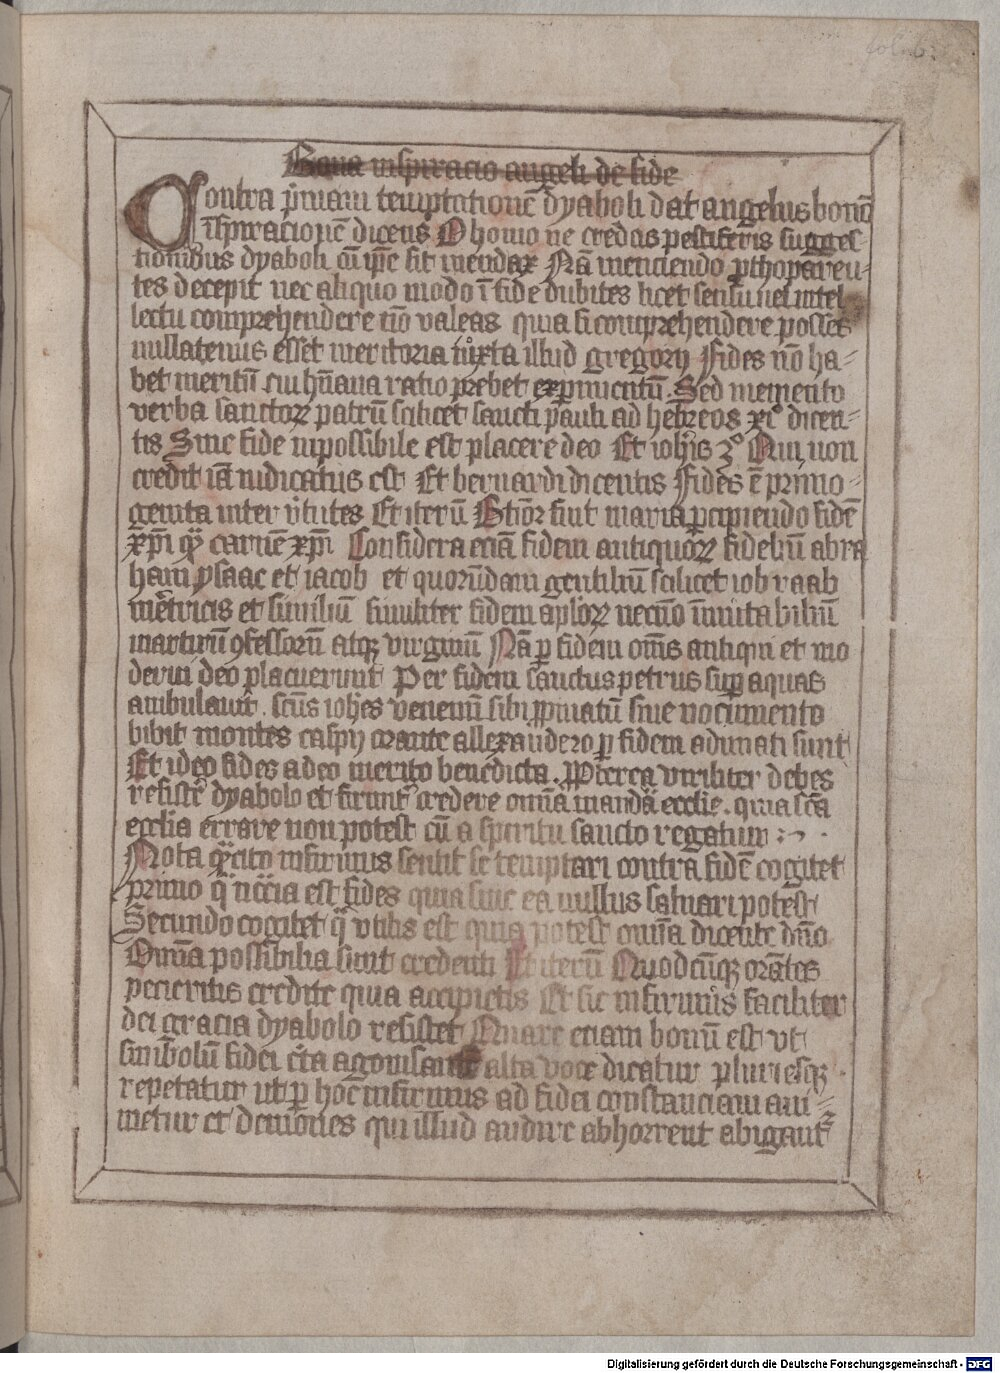 fol. 6.
Bona inspiracio angeli de fide
Contra p̄mam temptationē dyaboli dat angelus bonā
īspiracionē dicens O homo ne credas pestiferis sugges-
tionibus dyaboli cū ip̄e sit mendax Nā menciendo ꝓthoparen-
tes decepit nec aliquo modo ī fide dubites licet sensu uel intel
lectu comprehendere nō valeas quia si comprehendere posses
nullatenus esset meritoria iuxta illud gregorij Fides nō ha-
bet meritū cui hūana ratio prebet exꝑimentū. Sed memento
verba sanctoꝝ patrū scilicet sancti pauli ad hebreos xi° dicen-
tis Sine fide inpossibile est placere deo Et ioh̄is 3° Qui non
credit iā iudicatus est Et bernardi dicentis Fides ē primo-
genita inter v̄tutes Et iterū Bt̄ior fuit maria ꝑcipiendo fidē
xp̄i qꝫ carnē xp̄i Considera eciā fidem antiquoꝝ fideliū abra
ham ysaac et iacob et quorūdam gentiliū scilicet iob raab
mēt̄ricis et similiū similiter fidem apl̄oꝝ necnō īnūtabiliū
martirū ꝯfessorū atqꝫ virginū Nā ꝑ fidem om̄s antiqui et mo
derni deo placuerunt Per fidem sanctus petrus suꝑ aquas
ambulauit . scūs ioh̄es venenū sibi ꝓpinatū sine nocumento
bibit montes caspij orante allexandero ꝑ fidem adunati sunt
Et ideo fides a deo merito benedicta . Propterea viriliter debes
resistere dyabolo et firmit̄ credere om̄ia mandata eccl̄ie . quia scā
eccl̄ia errare non potest cū a spiritu sancto regatur
Nota qꝫcito infirmus sentit se temptari contra fidē cogitet
primo q̄ nccīa est fides quia sine ea nullus saluari potest
Secundo cogitet q̄ vtilis est quia potest omnia dicente dn̄o
Om̄ia possibilia sunt credenti Et iterū Quodcūqꝫ orātes
pecieritis credite quia accipietis Et sic infirmus faciliter
dei gracia dyabolo resistet Quare etiam bonū est vt
simbolū fidei c̄ta agonisantē alta voce dicatur pluriesqꝫ
repetatur ut ꝑ hoc infirmus ad fidei constanciam ani-
metur et demones qui illud audire abhorrent abigant̄
Digitalisierung gefördert durch die Deutsche Forschungsgemeinschaft - DFG